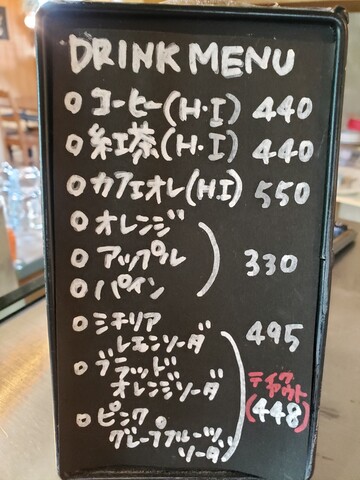 DRINK MENU
○ コーヒー(H・I) 440
○ 紅茶(H・I) 440
○ カフェオレ(H.I) 550
○ オレンジ
○ アップル 330
○ パイン
○ ミチリア
レモンソーダ 495
○ ブラッド
オレンジソーダ
テイク
アウト
(448)
○ ピンク
グレープフルーツ
ソーダ